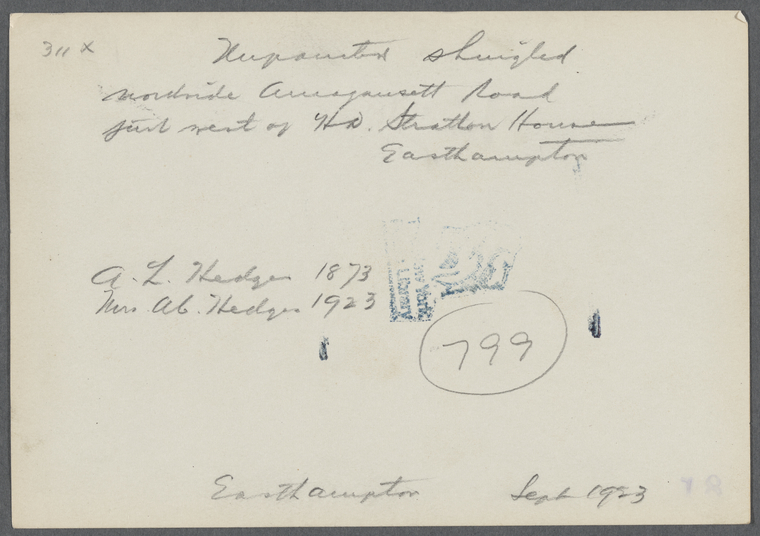 311 x
Unpainted shingled
northside Amagansett Road
just west of H.D. Stratton House
Easthampton
A. L. Hedges 1873
Mrs Ab. Hedges 1923
799
Easthampton Sept 1923